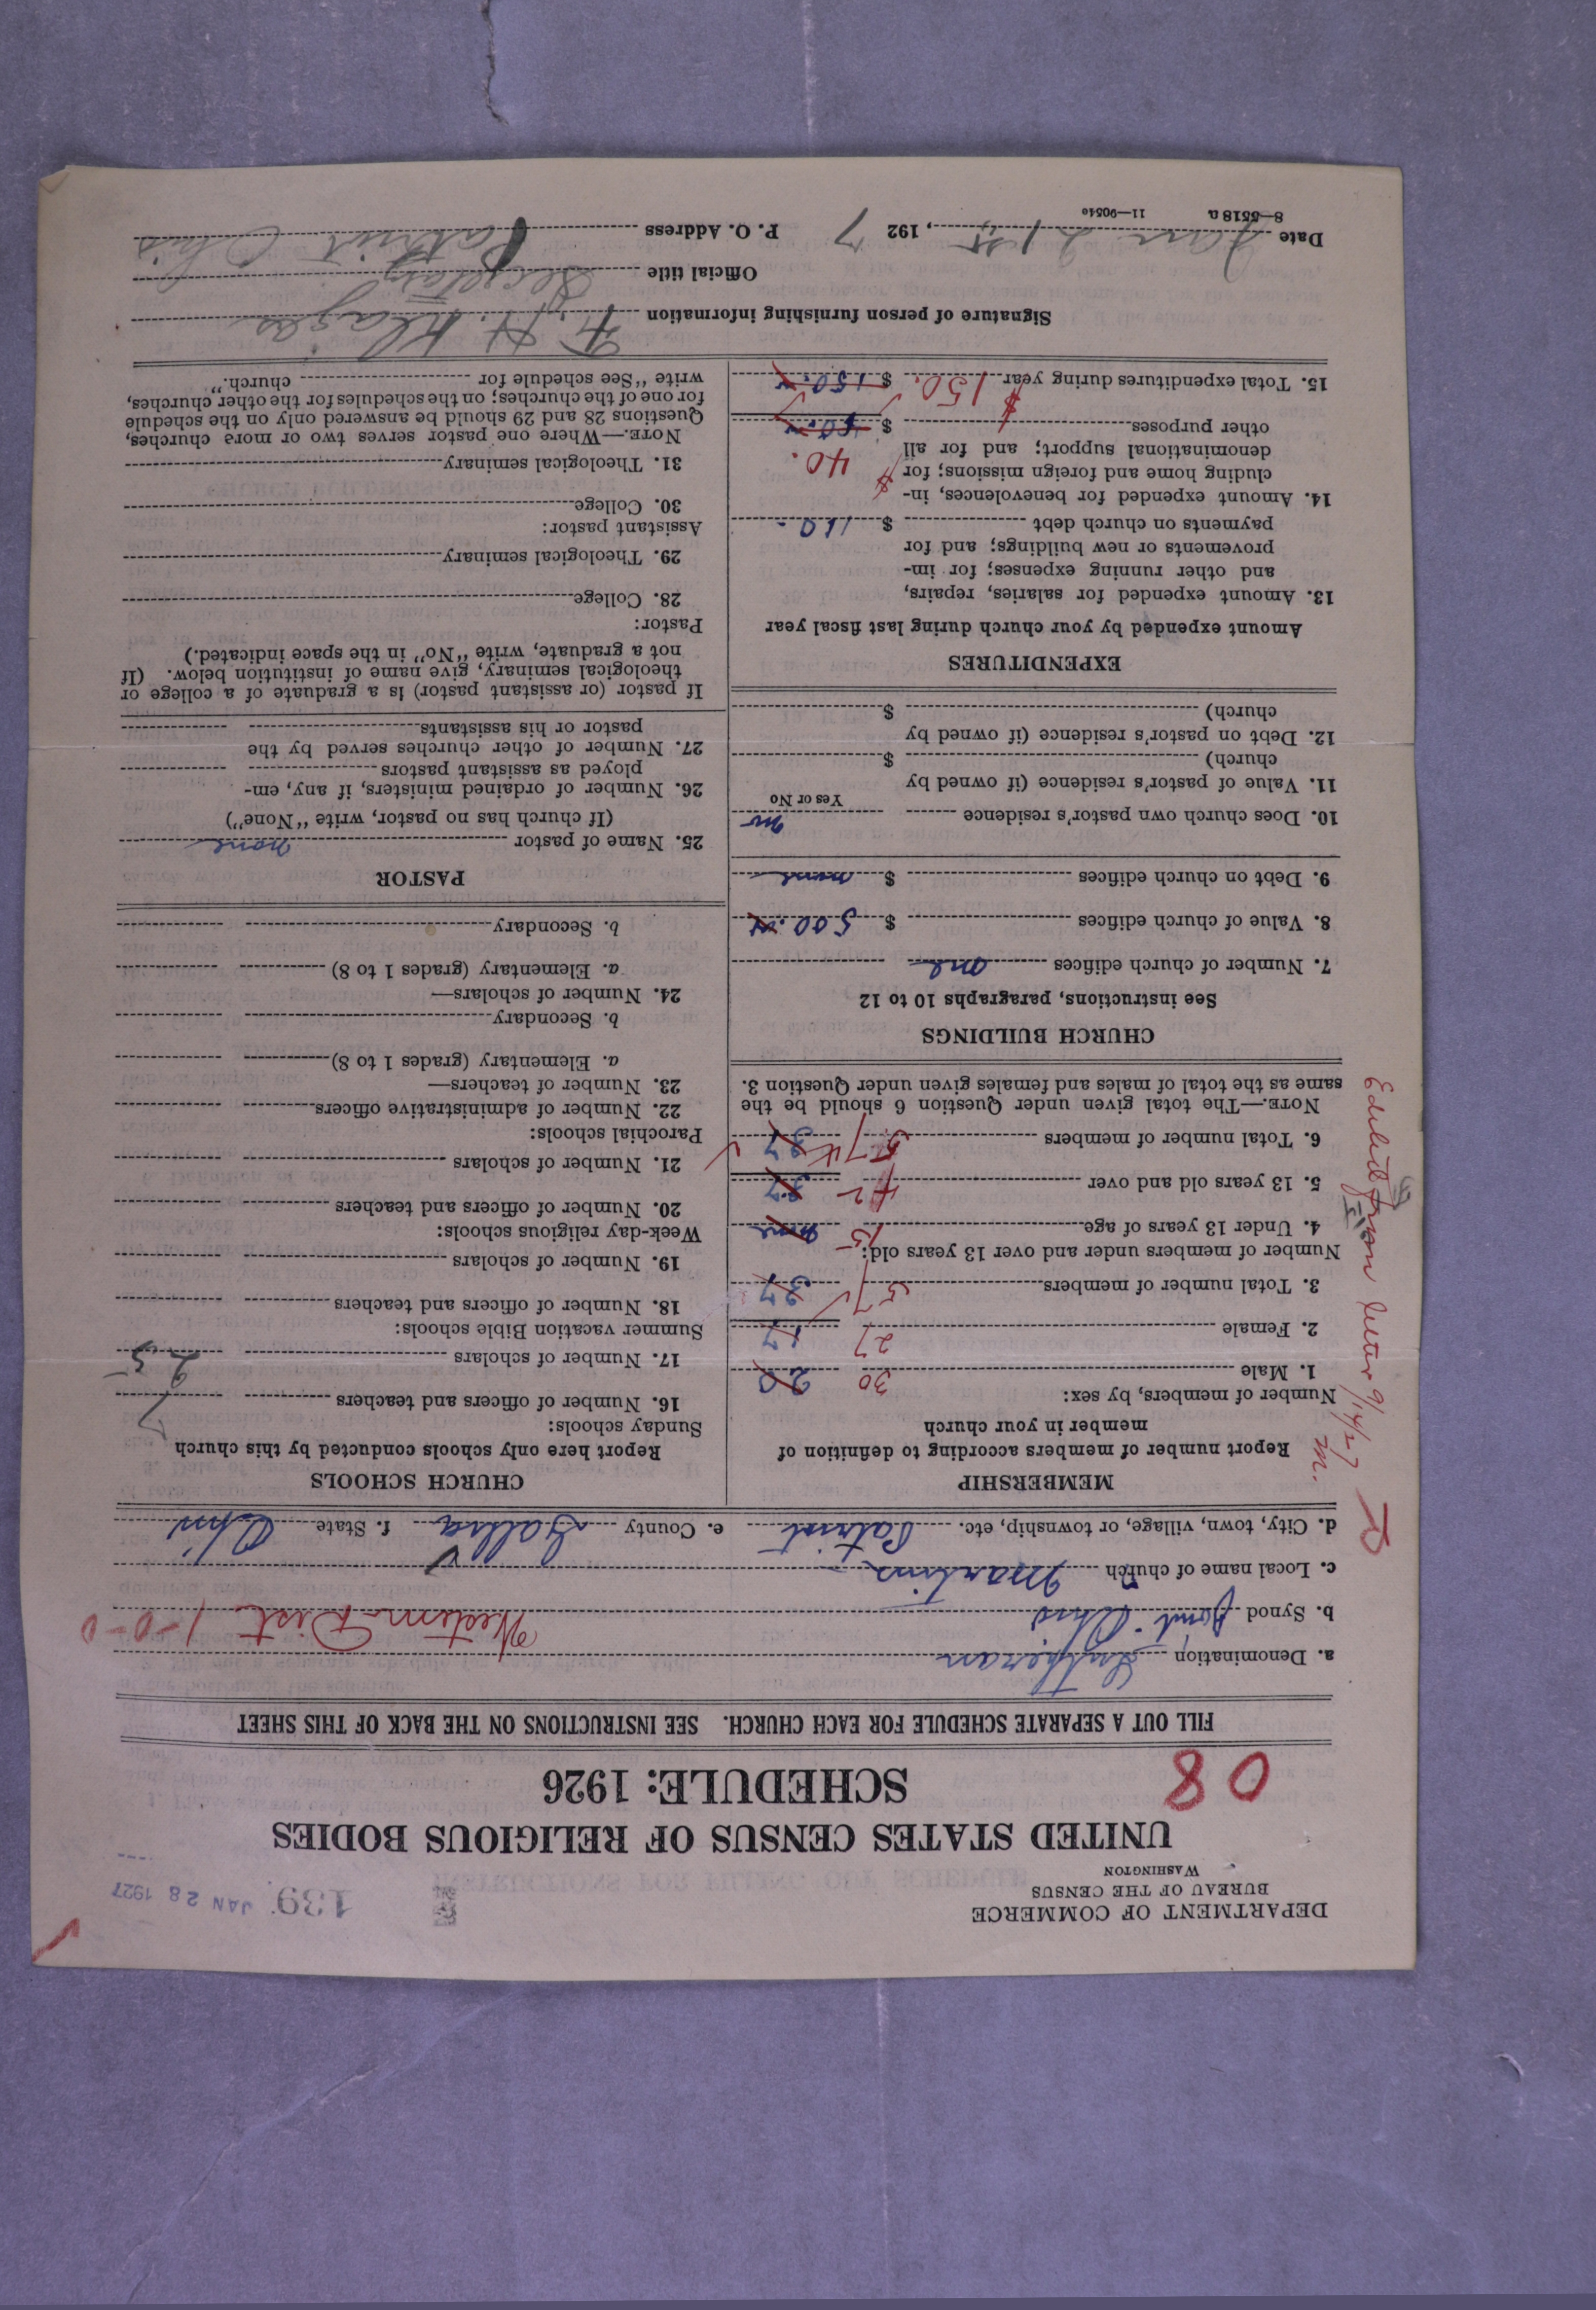 DEPARTMENT OF COMMERCE
BUREAU OF THE CENSUS
WASHINGTON
139. JAN 28 1927
UNITED STATES CENSUS OF RELIGIOUS BODIES
SCHEDULE: 1926
08
FILL OUT A SEPARATE SCHEDULE FOR EACH CHURCH. SEE INSTRUCTIONS ON THE BACK OF THIS SHEET
a. Denomination Lutheran
b. Synod Joint Ohio Western Dist 1-0-0
c. Local name of church Martins
d. City, town, village, or township, etc. Patriot e. County Gallia f. State Ohio
MEMBERSHIP
Report number of members according to definition of
member in your church
Number of members, by sex:
1. Male 30 20
2. Female 27 17
3. Total number of members 57 37
Number of members under and over 13 years old:
4. Under 13 years of age 15 none
5. 13 years old and over 42 37
6. Total number of members 57 37
NOTE.—The total given under Question 6 should be the
same as the total of males and females given under Question 3.
CHURCH BUILDINGS
See instructions, paragraphs 10 to 12
7. Number of church edifices one
8. Value of church edifices $ 500.
9. Debt on church edifices $ none
10. Does church own pastor's residence no
Yes or No
11. Value of pastor's residence (if owned by
church) $
12. Debt on pastor's residence (if owned by
church) $
EXPENDITURES
Amount expended by your church during last fiscal year
13. Amount expended for salaries, repairs,
and other running expenses; for im-
provements or new buildings; and for
payments on church debt $ 110.-
14. Amount expended for benevolences, in-
cluding home and foreign missions; for $ 40.
denominational support; and for all
other purposes $ 40.
15. Total expenditures during year $ 150. $ 150.
CHURCH SCHOOLS
Report here only schools conducted by this church
Sunday schools:
16. Number of officers and teachers 7
17. Number of scholars 25
Summer vacation Bible schools:
18. Number of officers and teachers
19. Number of scholars
Week-day religious schools:
20. Number of officers and teachers
21. Number of scholars
Parochial schools:
22. Number of administrative officers
23. Number of teachers—
a. Elementary (grades 1 to 8)
b. Secondary
24. Number of scholars—
a. Elementary (grades 1 to 8)
b. Secondary
PASTOR
25. Name of pastor none
(If church has no pastor, write "None")
26. Number of ordained ministers, if any, em-
ployed as assistant pastors
27. Number of other churches served by the
pastor or his assistants
If pastor (or assistant pastor) is a graduate of a college or
theological seminary, give name of institution below. (If
not a graduate, write "No" in the space indicated.)
Pastor:
28. College
29. Theological seminary
Assistant pastor:
30. College
31. Theological seminary
NOTE.—Where one pastor serves two or more churches,
Questions 28 and 29 should be answered only on the schedule
for one of the churches; on the schedules for the other churches,
write "See schedule for church."
Signature of person furnishing information F. H. Klages
Official title Secretary
Date Jan 21st, 1927 P. O. Address Patriot Ohio
8—5518 a 11—9054c
Edited from letter 9/14/27 M.